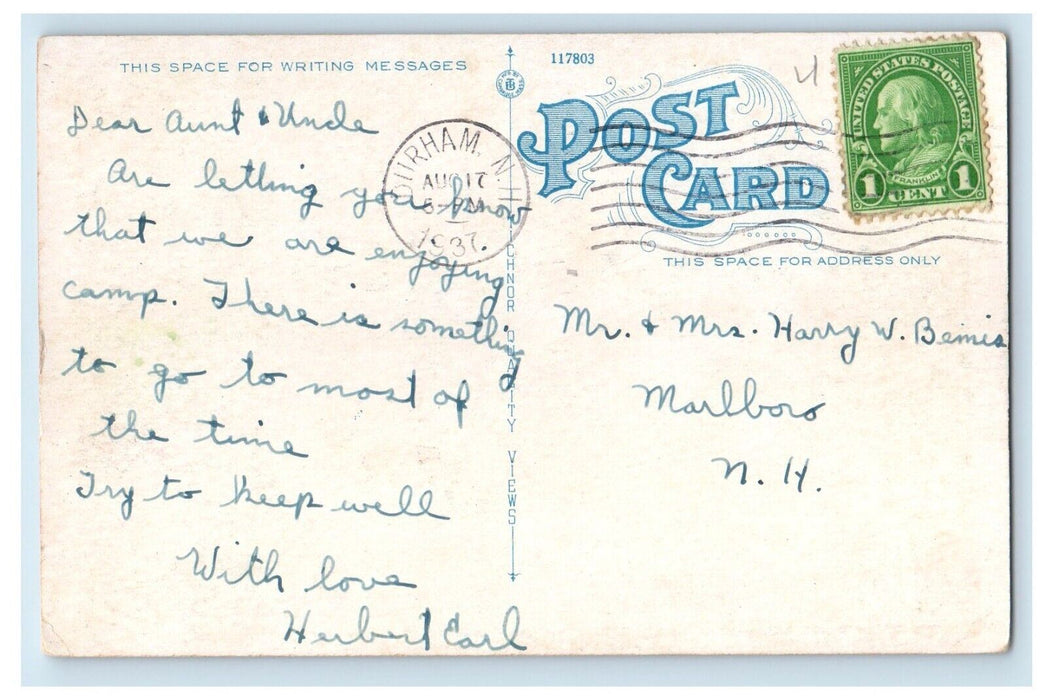 THIS SPACE FOR WRITING MESSAGES
Dear Aunt & Uncle
Are letting you know
that we are enjoying
camp. There is something
to go to most of
the time
Try to keep well
With love
Herbert Earl
DURHAM, N.H.
AUG 17
1937
117803
TICHNOR QUALITY VIEWS
POST
CARD
UNITED STATES POSTAGE
FRANKLIN
1 CENT 1
THIS SPACE FOR ADDRESS ONLY
Mr. & Mrs. Harry W. Bemis
Marlboro
N. H.